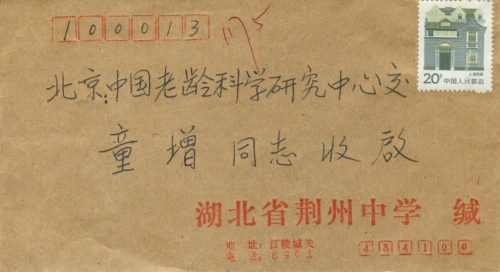 100013
1175
上海民居
20分 中国人民邮政
北京:中国老龄科学研究中心交
童增同志收啟
湖北省荆州中学 缄
地 址: 江陵城关
电 话:
434100